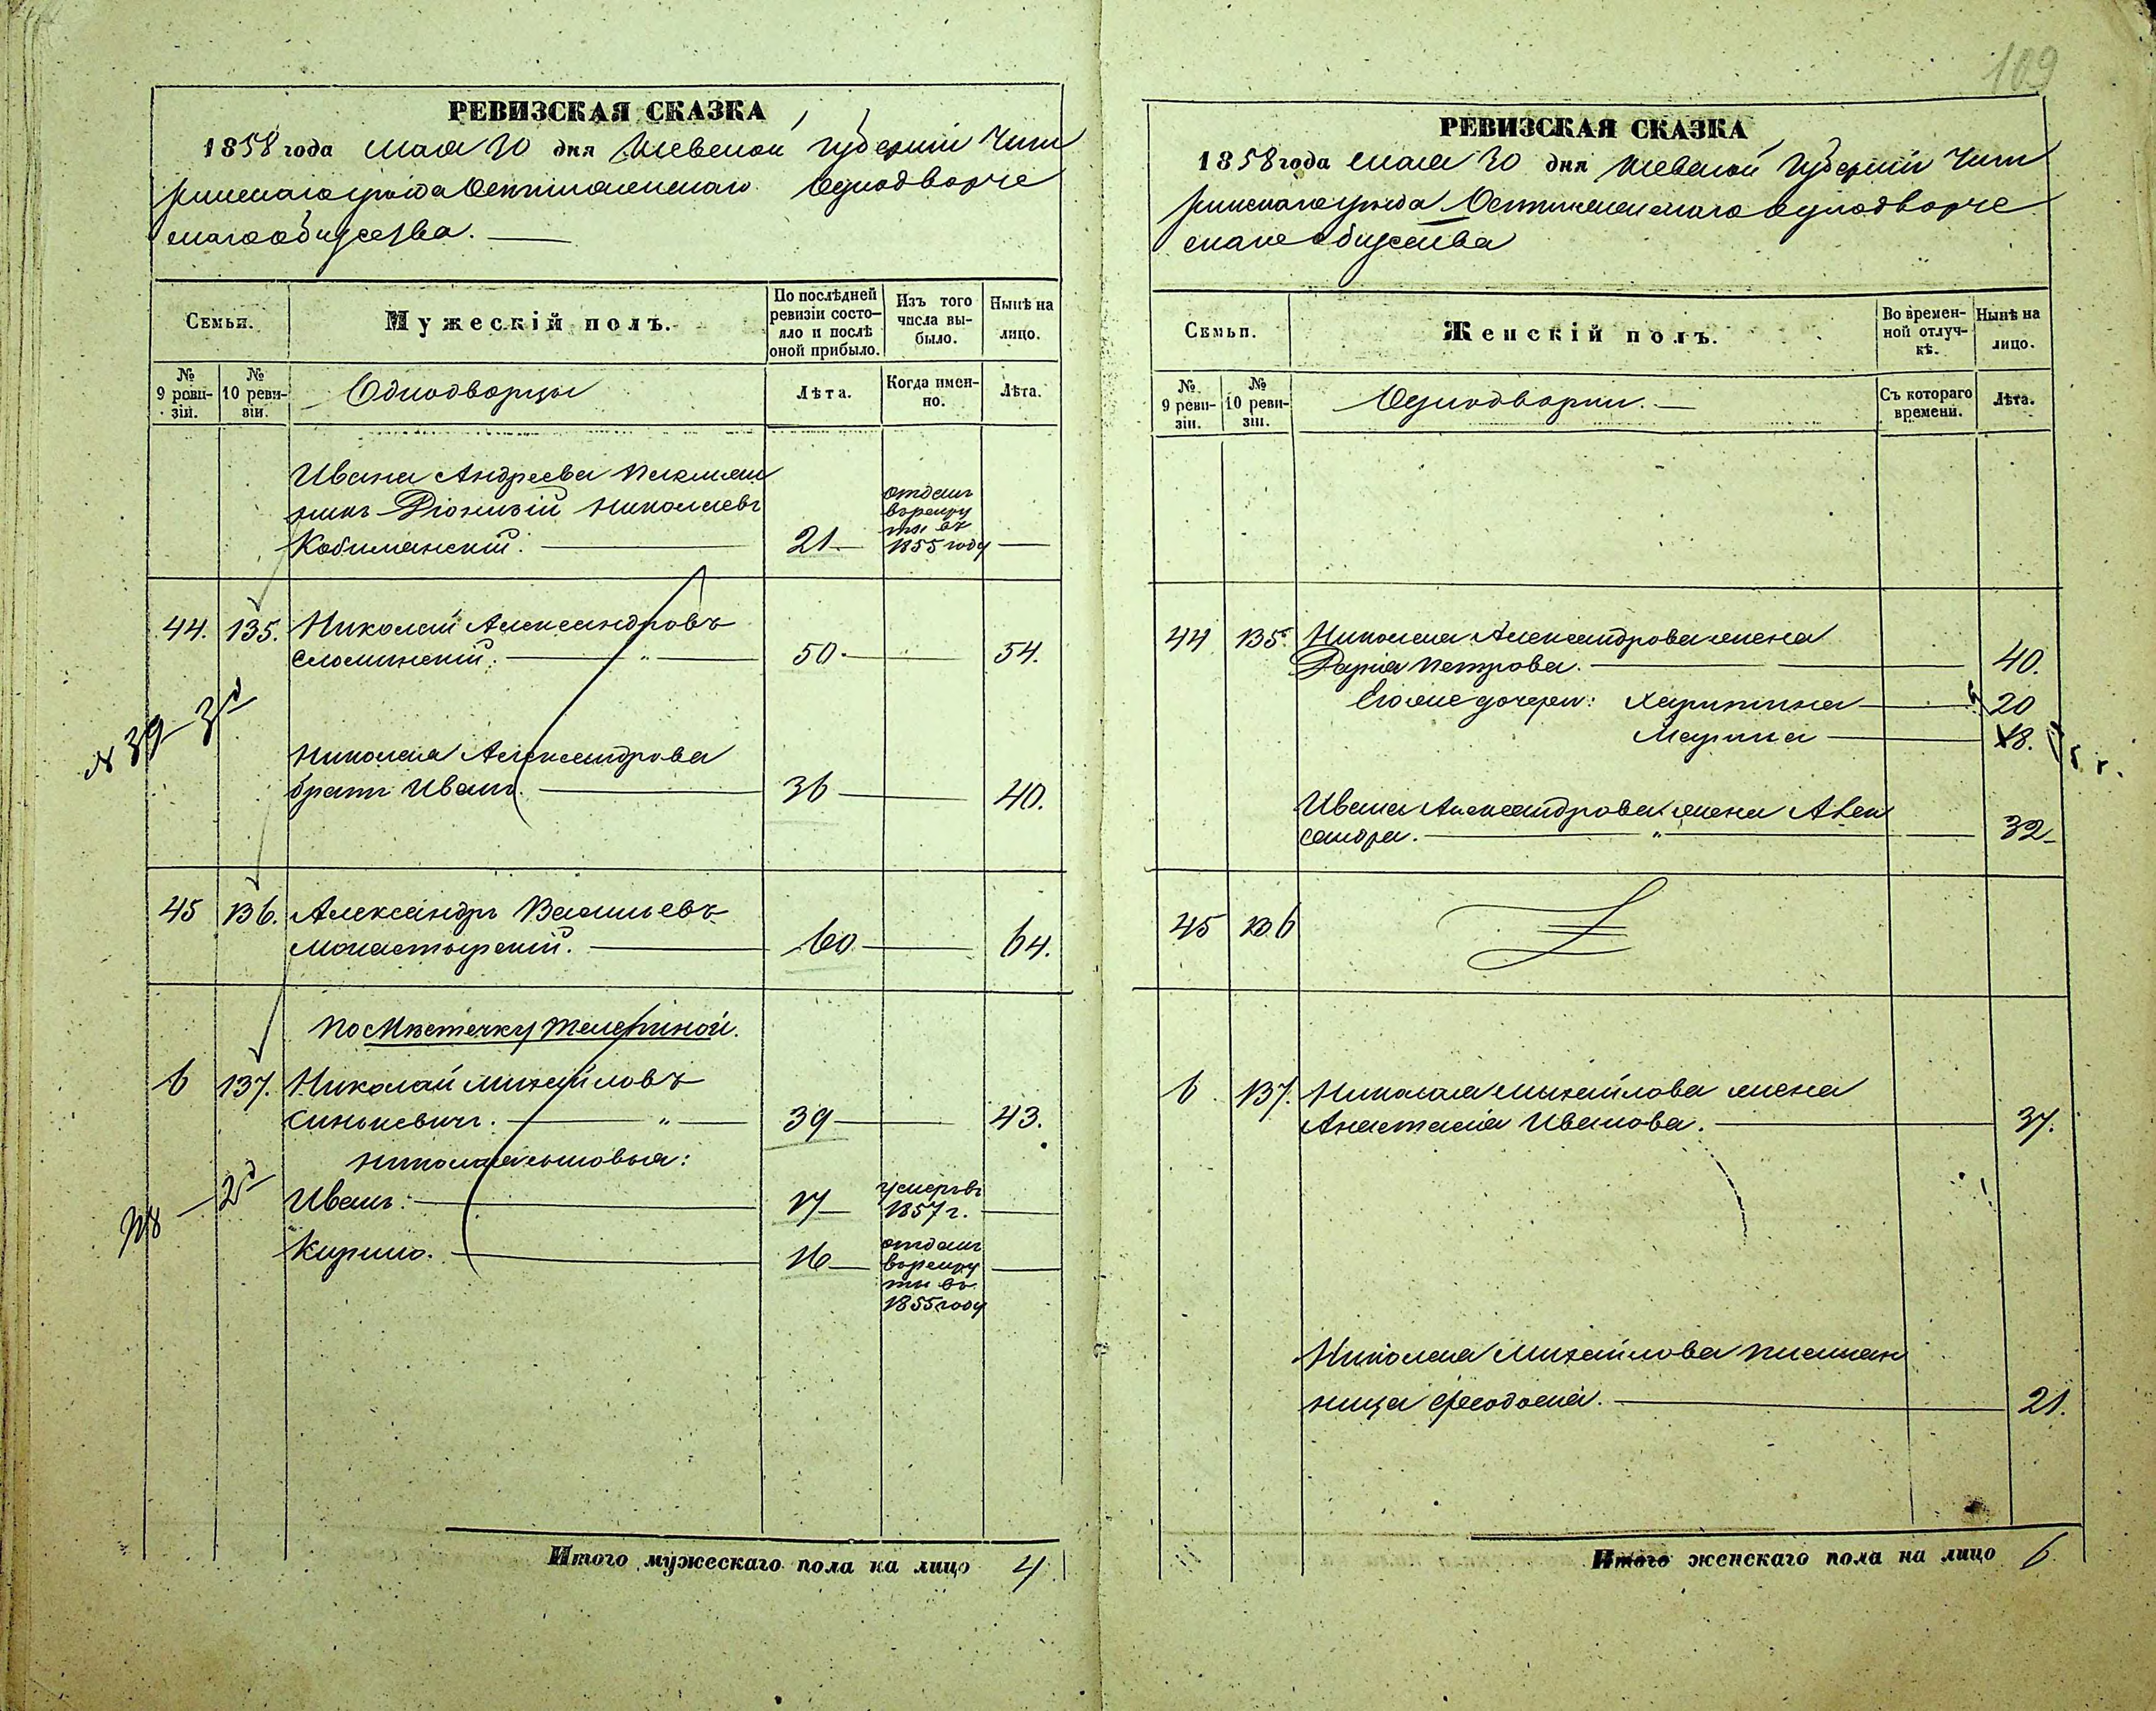 РЕВИЗСКАЯ СКАЗКА
1858 года мая 30 дня Киевской губерніи Чиги
ринскаго уѣзда однодворче
скаго общества.
Семьи.
Мужескій полъ.
По послѣдней ревизіи состояло и послѣ оной прибыло.
Изъ того числа выбыло.
Нынѣ на лицо.
№ 9 ревизіи.
№ 10 ревизіи.
Однодворцы
Лѣта.
Когда именно.
Лѣта.
Ивана Андреева племян
никъ Діонизій Николаевъ
21. отданъ в рекруты въ 1855 году
44. 135. Николай Александровъ
Сломинскій. 50. 54.
№ 39
Николая Александрова
братъ Иванъ. 36 40.
45 136. Александръ Васильевъ
Монастырскій. 60 64.
По мѣстечку Телепиной.
6 137. Николай Михайловъ
Синькевичъ. 39 43.
Николая сыновья:
Иванъ. 17 умеръ въ 1857 г.
Кирило. 16 отданъ в рекруты въ 1855 году
Итого мужескаго пола на лицо 4
109
РЕВИЗСКАЯ СКАЗКА
1858 года мая 30 дня Киевской губерніи Чиги
ринскаго уѣзда однодворче
скаго общества
Семьи.
Женскій полъ.
Во временной отлучкѣ.
Нынѣ на лицо.
№ 9 ревизіи.
№ 10 ревизіи.
Однодворки.
Съ котораго времени.
Лѣта.
44 135. Николая Александрова жена
Дарія Петрова. 40.
Его же дочери: Харитина 20
Марина 18.
Ивана Александрова жена Алек
сандра. 32
45 136
6 137. Николая Михайлова жена
Анастасія Иванова. 37.
Николая Михайлова племян
ница Феодосія. 21.
Итого женскаго пола на лицо 6